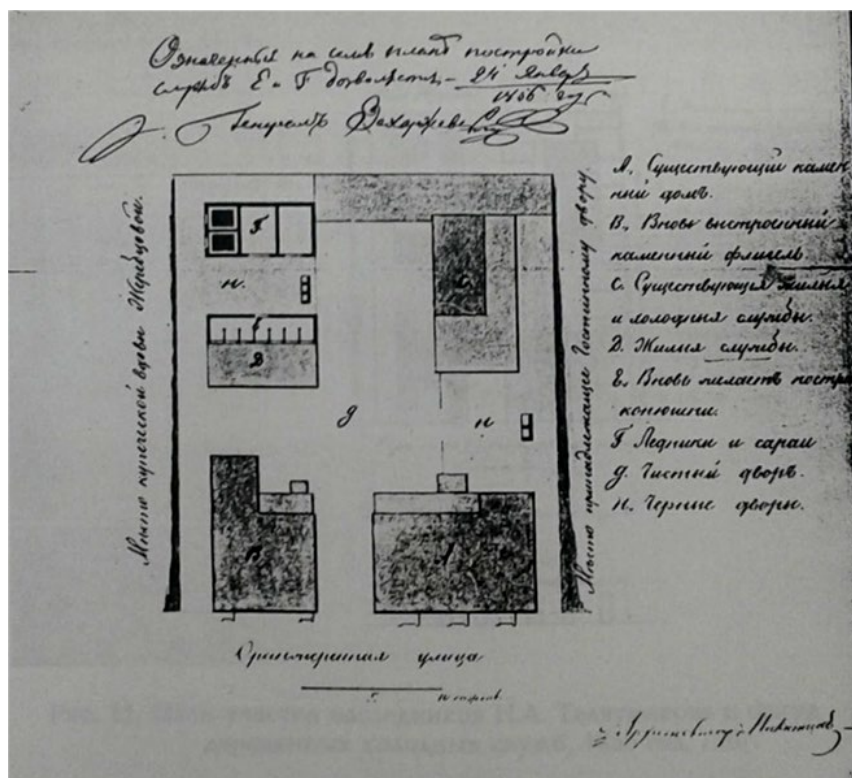 Означенныя на семъ планѣ постройки
службъ Е и F дозволяется 24 Января
Генералъ Захаржевскій
Мѣсто купеческой вдовы Жеребцовой.
F
н.
D
С
g
н
В
А
Мѣсто принадлежащее Гостинному двору.
А, Существующій камен
ный домъ.
В, Вновь выстроенный
каменный флигель.
С, Существующія жилыя
и холодныя службы.
D. Жилыя службы.
Е, Вновь желаетъ постро
конюшни.
F Ледники и сараи
g. Чистый дворъ.
н. Черные дворы.
Оранжерейная улица
Архитекторъ Никитинъ